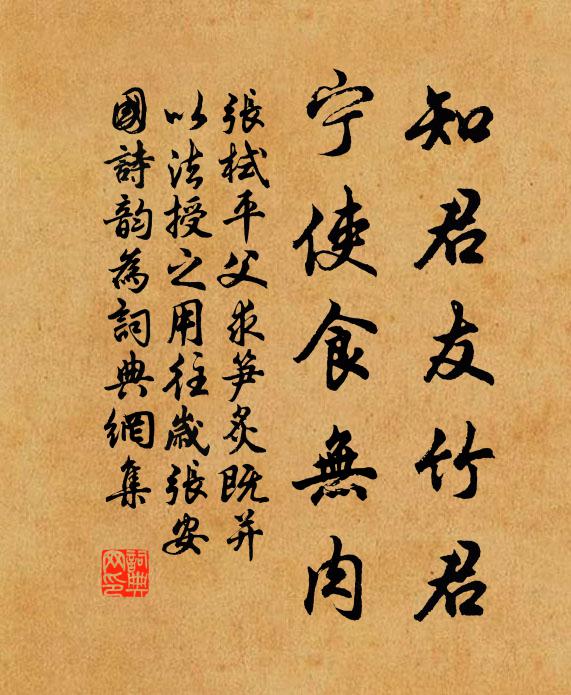 知君友竹君
宁使食無肉
張栻平父求笋炙既并
以法授之用往歲張安
國詩韵為詞典網集
詞典網印